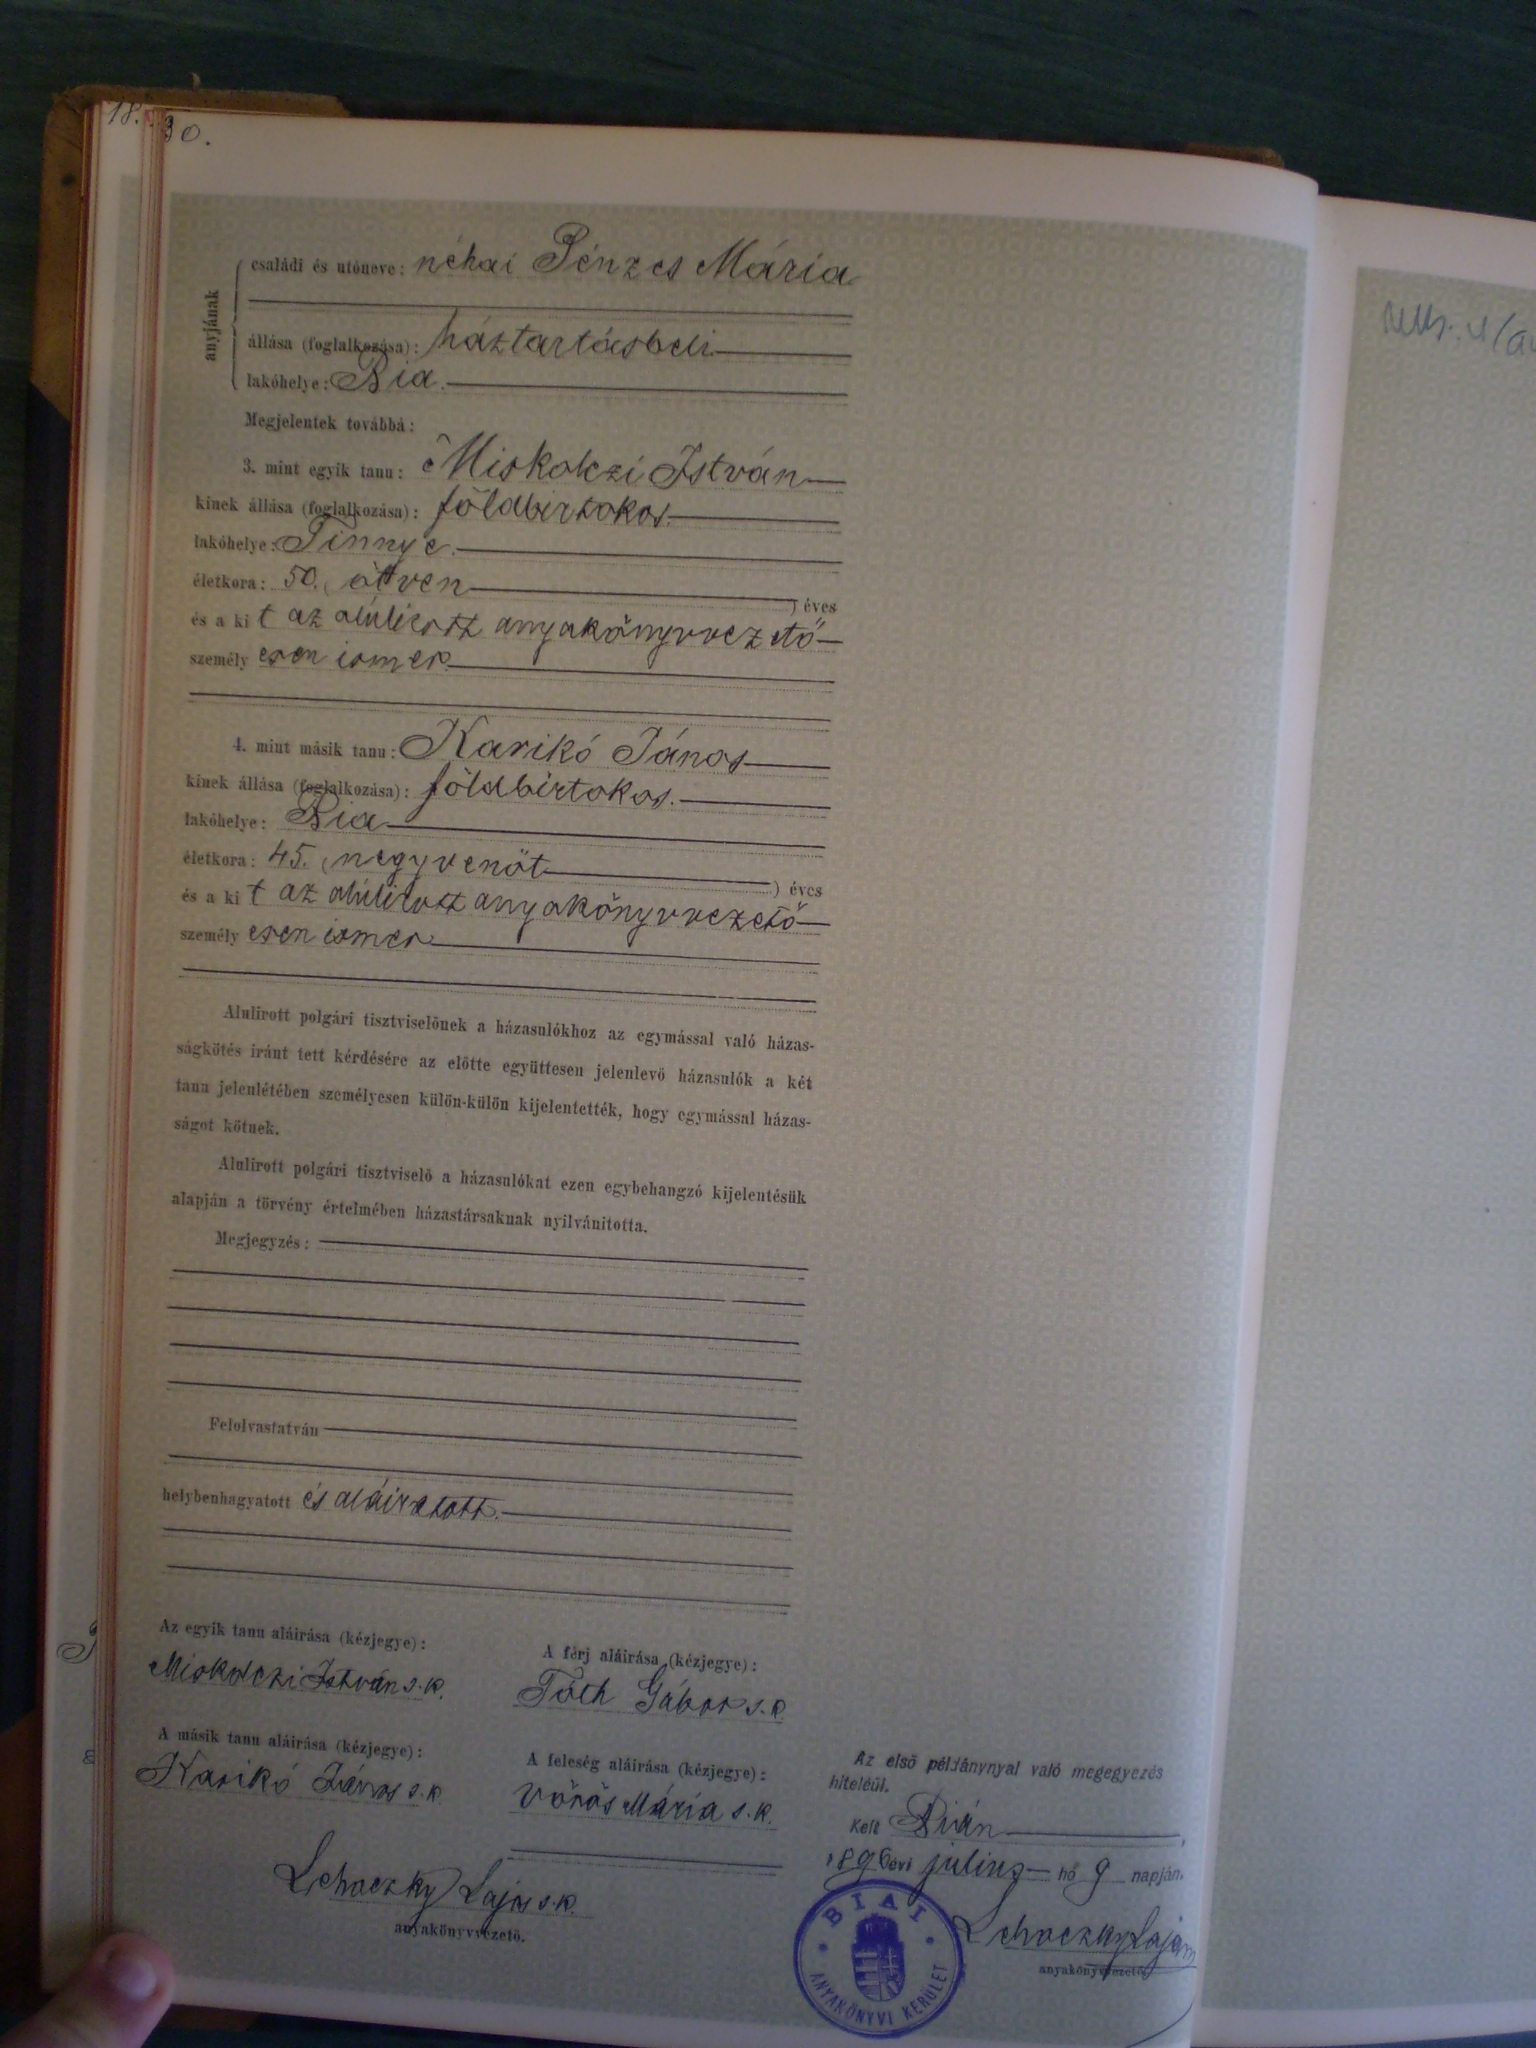 18.
30.
anyjának
családi és utóneve: néhai Pénzes Mária
állása (foglalkozása): háztartásbeli
lakóhelye: Bia.
Megjelentek továbbá:
3. mint egyik tanu: Miskolczi István
kinek állása (foglalkozása): földbirtokos.
lakóhelye: Tinnye.
életkora: 50. (ötven ) éves
és a ki t az alúlirott anyakönyvvezető
személy esen ismer.
4. mint másik tanu: Karikó János
kinek állása (foglalkozása): földbirtokos.
lakóhelye: Bia
életkora: 45. (negyvenöt ) éves
és a ki t az alúlirott anyakönyvvezető
személy esen ismer.
Alulirott polgári tisztviselőnek a házasulókhoz az egymással való házas-
ságkötés iránt tett kérdésére az előtte együttesen jelenlevő házasulók a két
tanu jelenlétében személyesen külön-külön kijelentették, hogy egymással házas-
ságot kötnek.
Alulirott polgári tisztviselő a házasulókat ezen egybehangzó kijelentésük
alapján a törvény értelmében házastársaknak nyilvánitotta.
Megjegyzés:
Felolvastatván
helybenhagyatott és aláiratott.
Az egyik tanu aláirása (kézjegye):
Miskolczi István s.k.
A férj aláirása (kézjegye):
Tóth Gábor s.k.
A másik tanu aláirása (kézjegye):
Karikó János s.k.
A feleség aláirása (kézjegye):
Vörös Mária s.k.
Lehoczky Lajos s.k.
anyakönyvvezető.
Az első példánynyal való megegyezés
hiteléül.
Kelt Bián,
1896 évi július hó 9 napján.
Lehoczky Lajos
anyakönyvvezető
BIAI
ANYAKÖNYVI KERÜLET